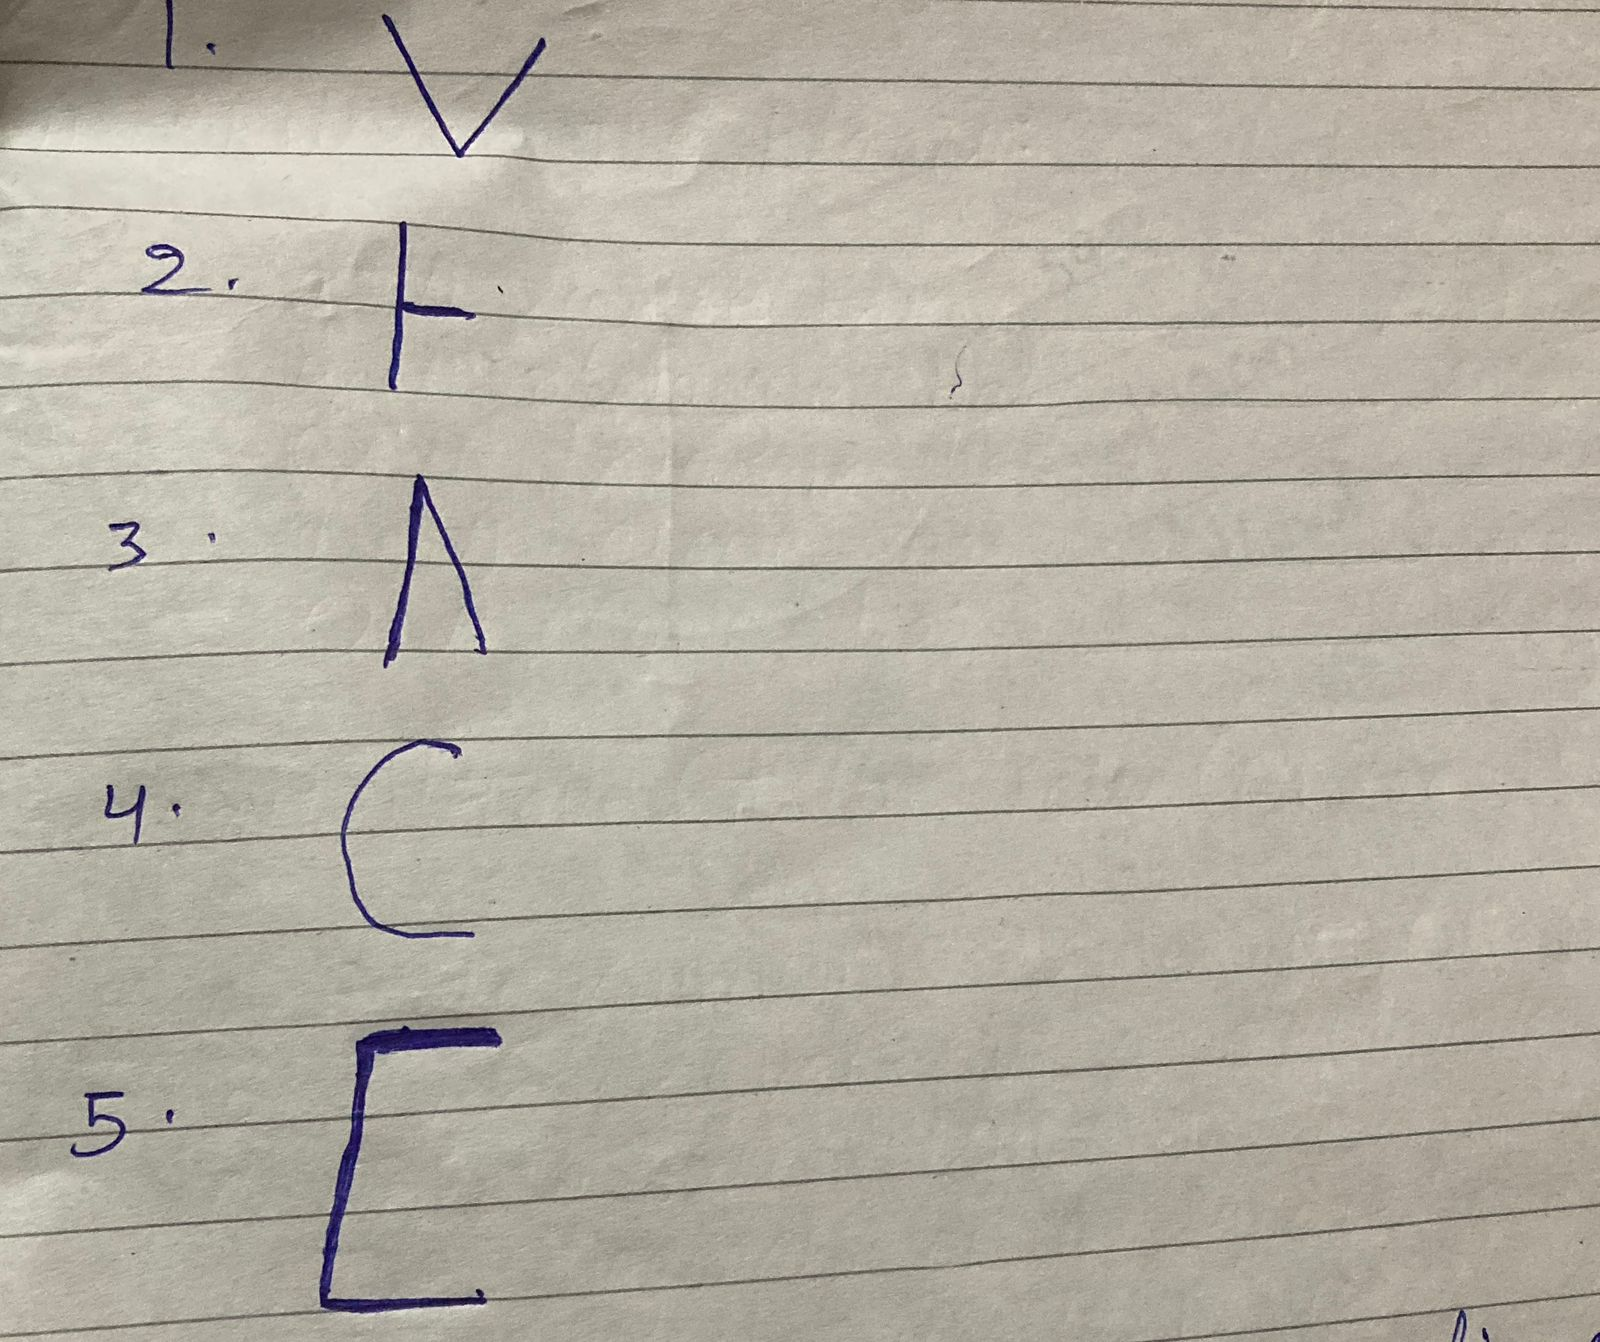 1. V
2. ⊢
3. Λ
4. C
5. [